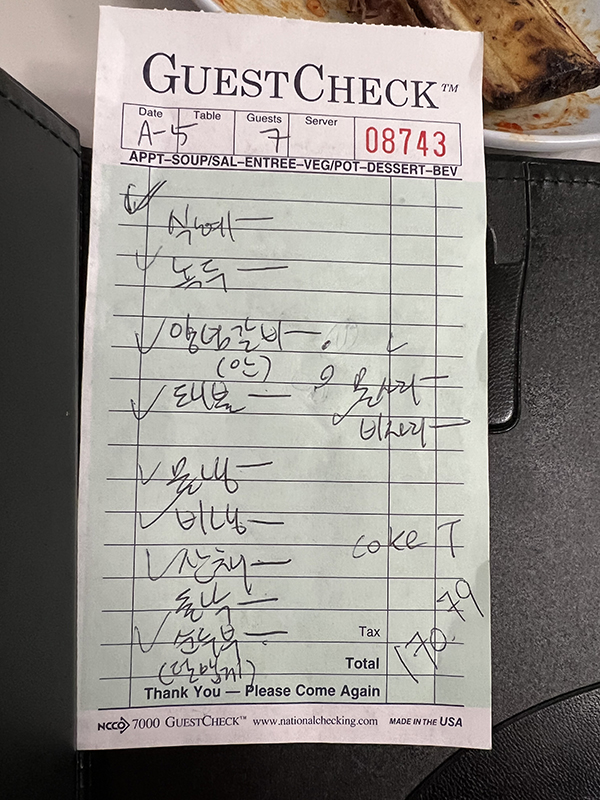 GUESTCHECK™
Date Table Guests Server
A-15 7 08743
APPT–SOUP/SAL–ENTREE–VEG/POT–DESSERT–BEV
식혜 —
녹두 —
양념갈비 —
(안)
돼불 — 물사리 —
비사리 —
물냉 —
비냉 —
잡채 —
돌낙 —
coke T
순두부 — Tax
Total 170.79
(덜맵게)
Thank You — Please Come Again
NCCO 7000 GUESTCHECK™ www.nationalchecking.com MADE IN THE USA